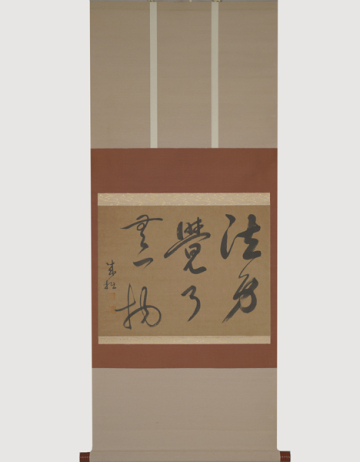 法身
覺了
無一物